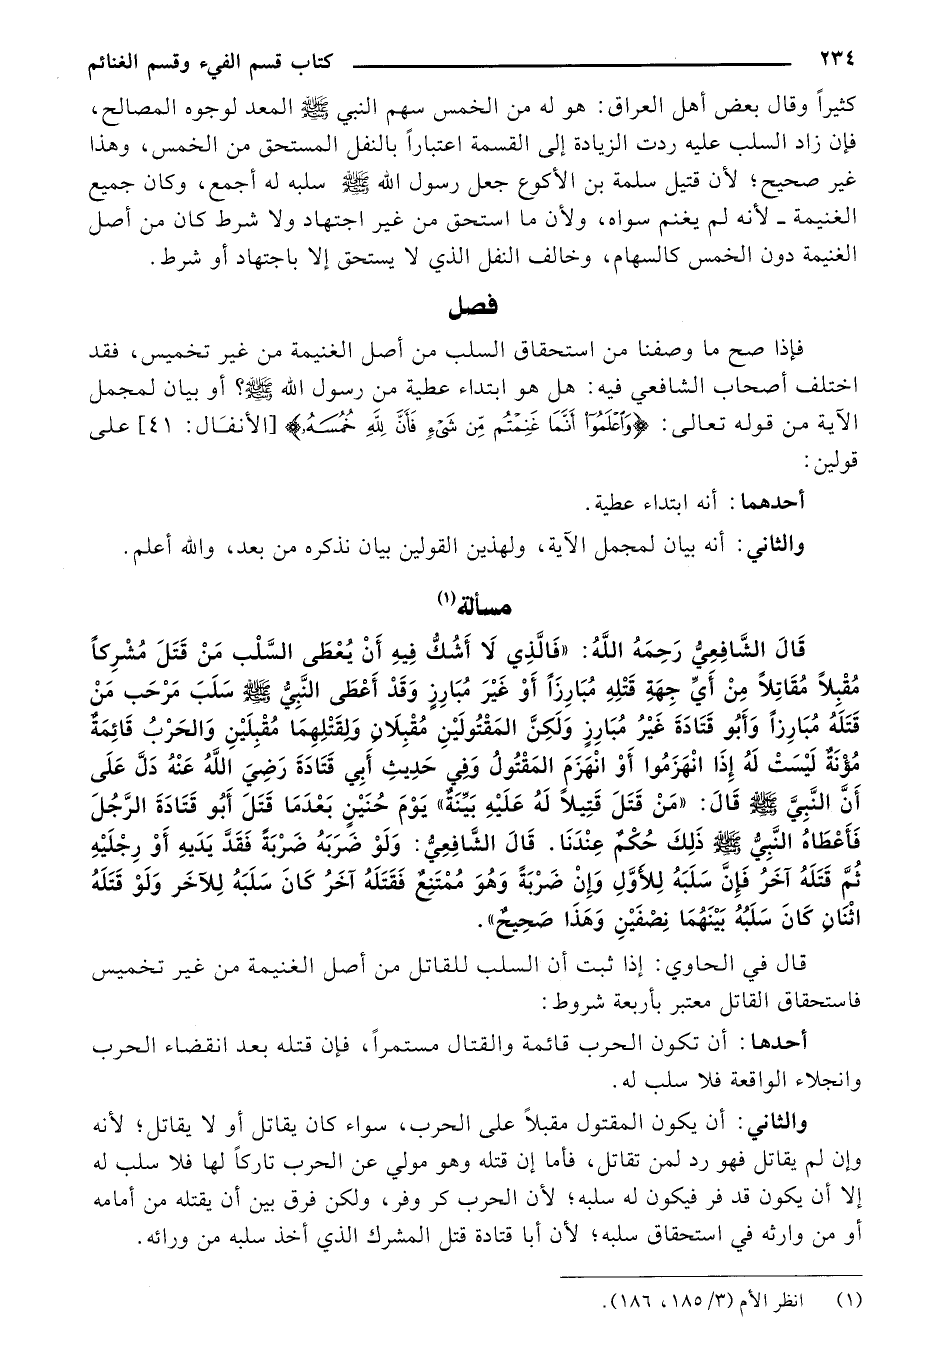 ٢٣٤ كتاب قسم الفيء وقسم الغنائم
كثيراً وقال بعض أهل العراق: هو له من الخمس سهم النبي ﷺ المعد لوجوه المصالح،
فإن زاد السلب عليه ردت الزيادة إلى القسمة اعتباراً بالنفل المستحق من الخمس، وهذا
غير صحيح؛ لأن قتيل سلمة بن الأكوع جعل رسول الله ﷺ سلبه له أجمع، وكان جميع
الغنيمة ـ لأنه لم يغنم سواه، ولأن ما استحق من غير اجتهاد ولا شرط كان من أصل
الغنيمة دون الخمس كالسهام، وخالف النفل الذي لا يستحق إلا باجتهاد أو شرط.
فصل
فإذا صح ما وصفنا من استحقاق السلب من أصل الغنيمة من غير تخميس، فقد
اختلف أصحاب الشافعي فيه: هل هو ابتداء عطية من رسول الله ﷺ؟ أو بيان لمجمل
الآية من قوله تعالى: ﴿وَٱعۡلَمُوٓاْ أَنَّمَا غَنِمۡتُم مِّن شَيۡءٖ فَأَنَّ لِلَّهِ خُمُسَهُۥ﴾ [الأنفال: ٤١] على
قولين:
أحدهما: أنه ابتداء عطية.
والثاني: أنه بيان لمجمل الآية، ولهذين القولين بيان نذكره من بعد، والله أعلم.
مسألة(١)
قَالَ الشَّافِعِيُّ رَحِمَهُ اللَّهُ: «فَالَّذِي لَا أَشُكُّ فِيهِ أَنْ يُعْطَى السَّلْب مَنْ قَتَلَ مُشْرِكاً
مُقْبِلاً مُقَاتِلاً مِنْ أَيِّ جِهَةٍ قَتْلِهِ مُبَارَزاً أَوْ غَيْرَ مُبَارِزٍ وَقَدْ أَعْطَى النَّبِيُّ ﷺ سَلَبَ مَرْحَب مَنْ
قَتَلَهُ مُبَارِزاً وَأَبُو قَتَادَةَ غَيْرُ مُبَارِزٍ وَلَكِنَّ المَقْتُولَيْنِ مُقْبِلَانِ وَلِقَتْلِهِمَا مُقْبِلَيْنِ وَالحَرْبُ قَائِمَةٌ
مُؤْنَةٌ لَيْسَتْ لَهُ إِذَا انْهَزَمُوا أَوْ انْهَزَمَ المَقْتُولُ وَفِي حَدِيثِ أَبِي قَتَادَةَ رَضِيَ اللَّهُ عَنْهُ دَلَّ عَلَى
أَنَّ النَّبِيَّ ﷺ قَالَ: «مَنْ قَتَلَ قَتِيلاً لَهُ عَلَيْهِ بَيِّنَةٌ» يَوْمَ حُنَيْنٍ بَعْدَمَا قَتَلَ أَبُو قَتَادَةَ الرَّجُلَ
فَأَعْطَاهُ النَّبِيُّ ﷺ ذَلِكَ حُكْمٌ عِنْدَنَا. قَالَ الشَّافِعِيُّ: وَلَوْ ضَرَبَهُ ضَرْبَةً فَقَدَّ يَدَيهِ أَوْ رِجْلَيْهِ
ثُمَّ قَتَلَهُ آخَرُ فَإِنَّ سَلَبَهُ لِلأَوَّلِ وَإِنْ ضَرْبَةً وَهُوَ مُمْتَنِعٌ فَقَتَلَهُ آخَرُ كَانَ سَلَبَهُ لِلآخَرِ وَلَوْ قَتَلَهُ
اثْنَانِ كَانَ سَلَبُهُ بَيْنَهُمَا نِصْفَيْنِ وَهَذَا صَحِيحٌ».
قال في الحاوي: إذا ثبت أن السلب للقاتل من أصل الغنيمة من غير تخميس
فاستحقاق القاتل معتبر بأربعة شروط:
أحدها: أن تكون الحرب قائمة والقتال مستمراً، فإن قتله بعد انقضاء الحرب
وانجلاء الواقعة فلا سلب له.
والثاني: أن يكون المقتول مقبلاً على الحرب، سواء كان يقاتل أو لا يقاتل؛ لأنه
وإن لم يقاتل فهو رد لمن تقاتل، فأما إن قتله وهو مولي عن الحرب تاركاً لها فلا سلب له
إلا أن يكون قد فر فيكون له سلبه؛ لأن الحرب كر وفر، ولكن فرق بين أن يقتله من أمامه
أو من وارثه في استحقاق سلبه؛ لأن أبا قتادة قتل المشرك الذي أخذ سلبه من ورائه.
(١) انظر الأم (٣/ ١٨٥، ١٨٦).